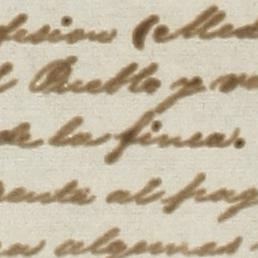 fesion (Med
l Pueblo y ve
de la finca.
renta al pag
a algunas